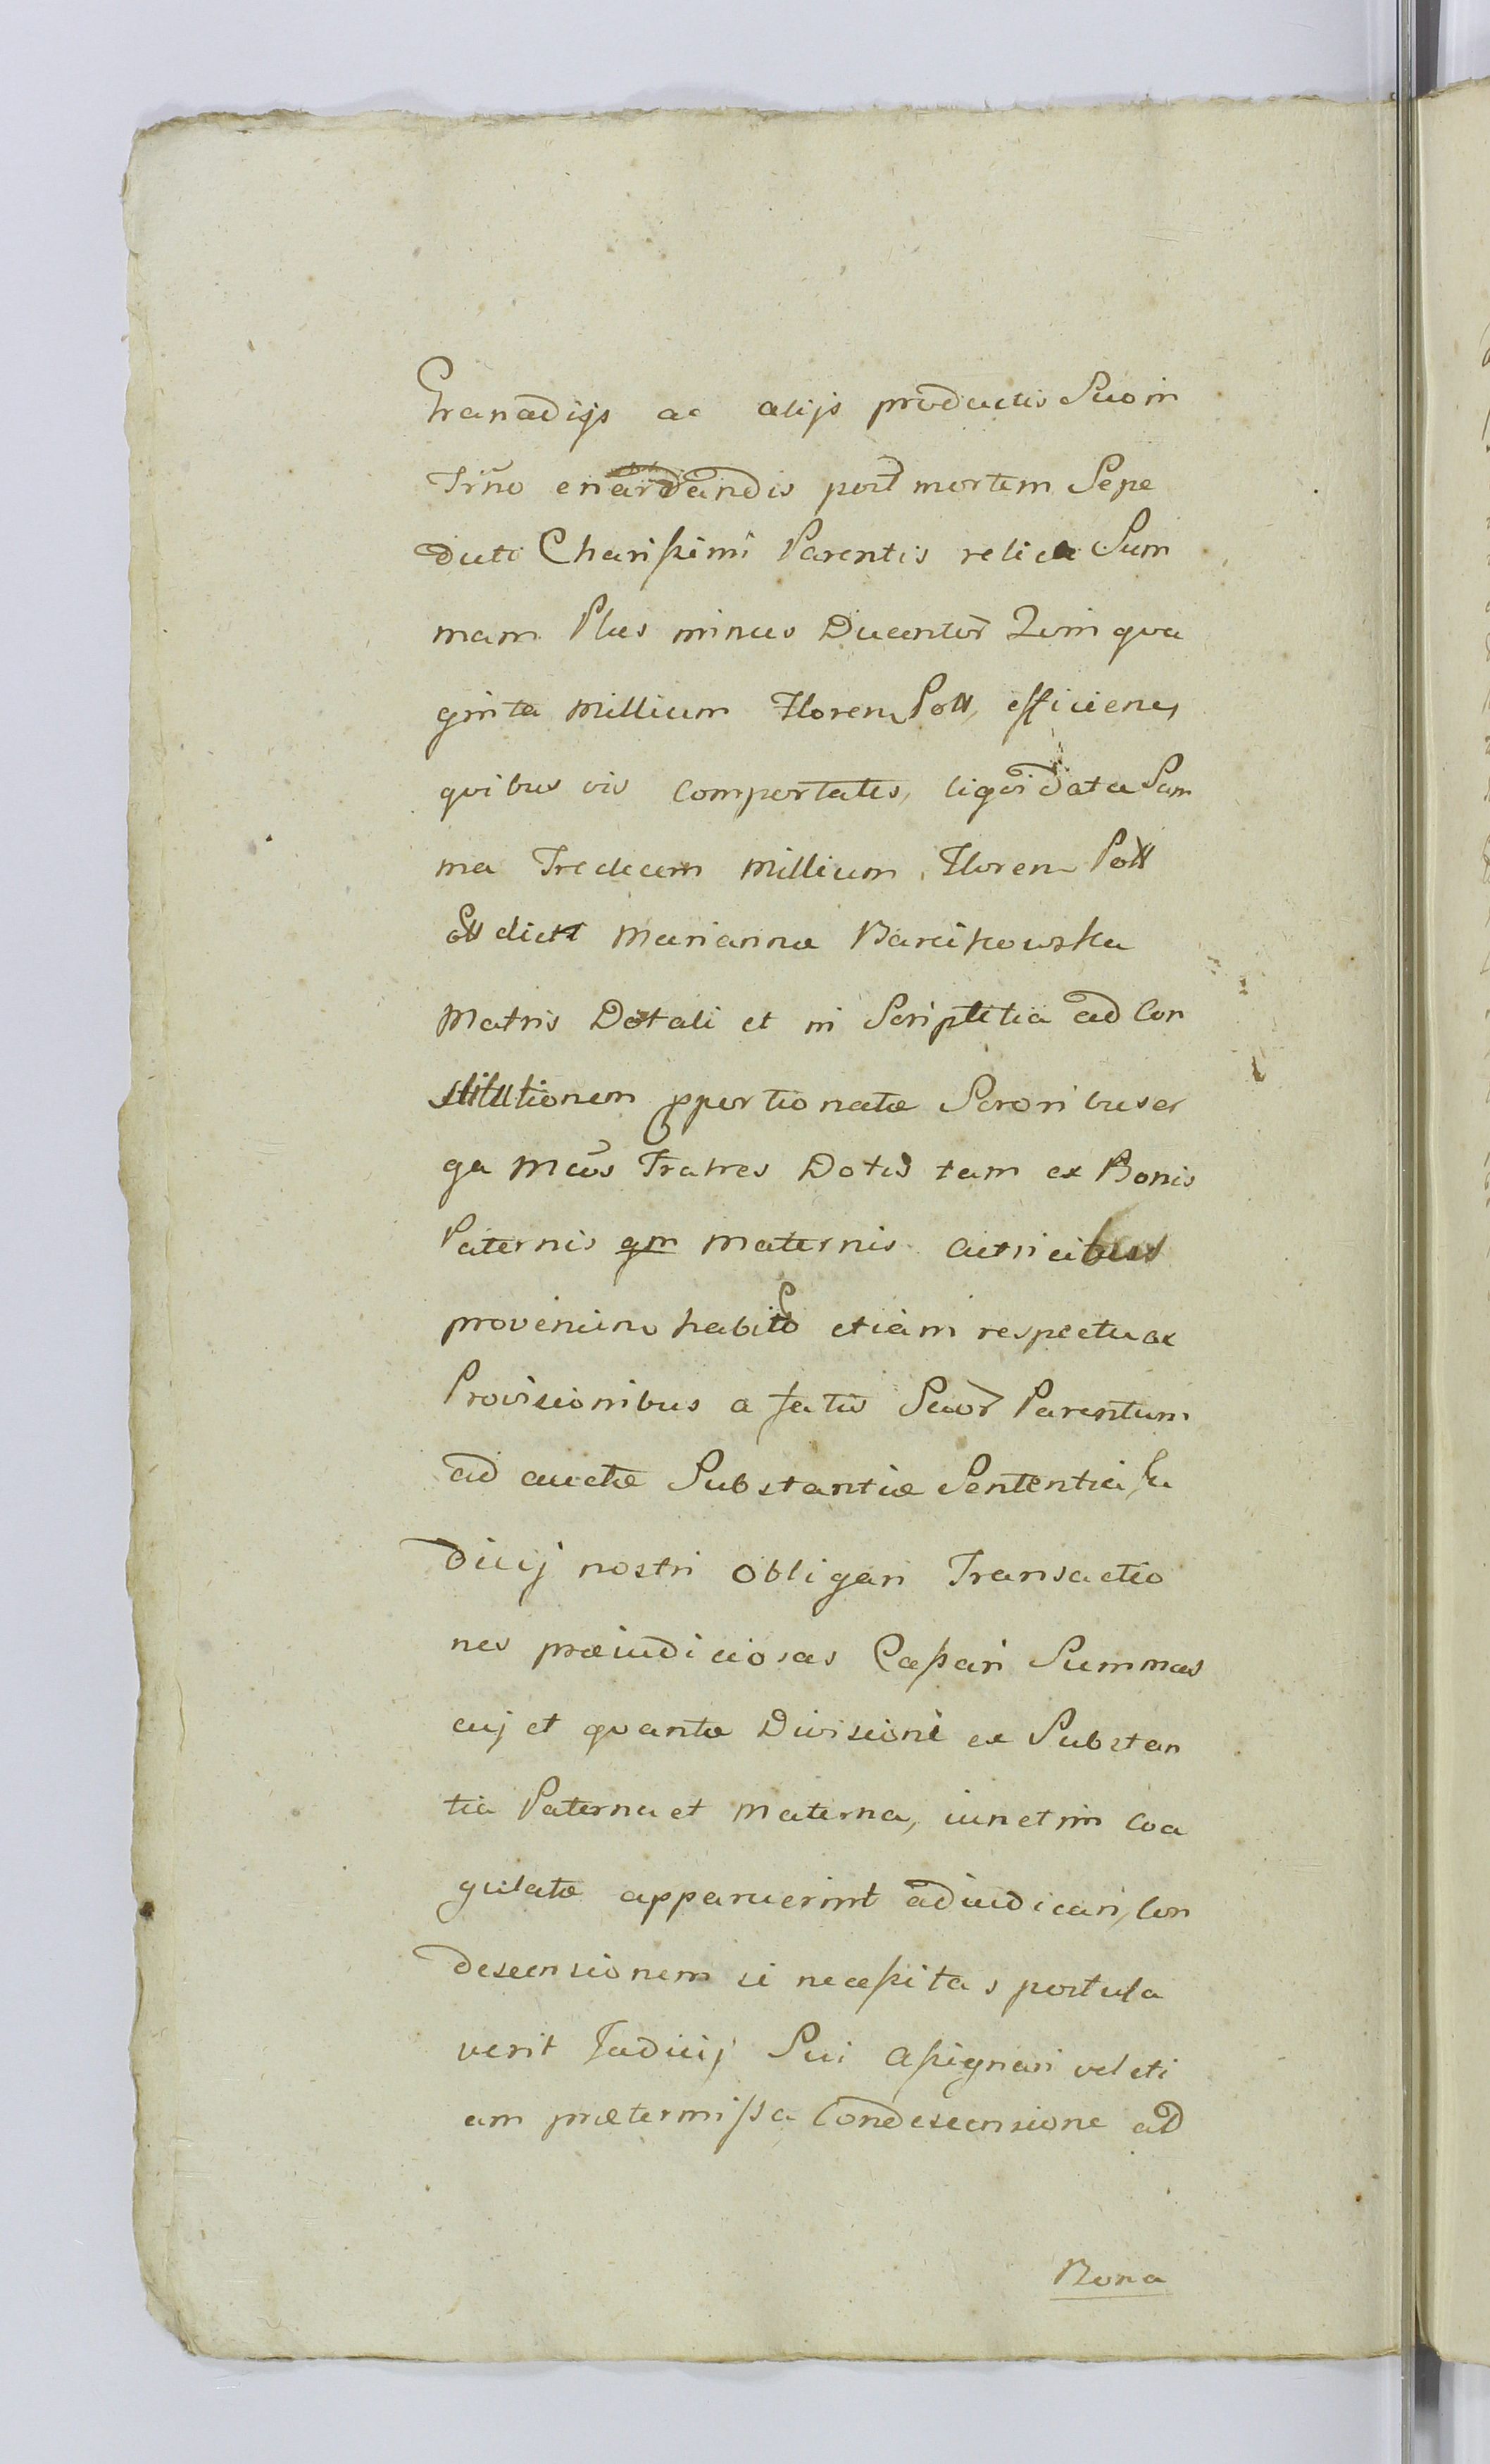 Granadijs ac alijs productis Suo in
Trno enardandis post mortem Sepe
dicti Charissimi Parentis relicta Sum
mam Plus minus Ducentor Quinqua
ginta Millium Floren Poll, efficiens
quibusvis comportatis, liquidata Sum
ma Tredecem Millium Floren Poll
oll dicta Marianna Barcikowska
Matris Dotali et in Scriptitia ad Con
stitutionem pportionatæ Sororibus er
ga Mcos Fratres Dotis tam ex Bonis
Paternis qm Maternis
provenien habito etiam respectu ex
Provisionibus a fatis Suor Parentum
ad auctæ Substantiæ Sententia Iu
dicij nostri Obligari Transactio
nes præiudiciosas Cassari Summas
cuj et quantæ Divisioni ex Substan
tia Paterna et Materna, iunctim coa
gulatæ apparuerint adiudicari, Con
descensionem si necessitas postula
verit Iudicij Sui Assignari vel eti
am prætermissa Condescensione ad
Bona